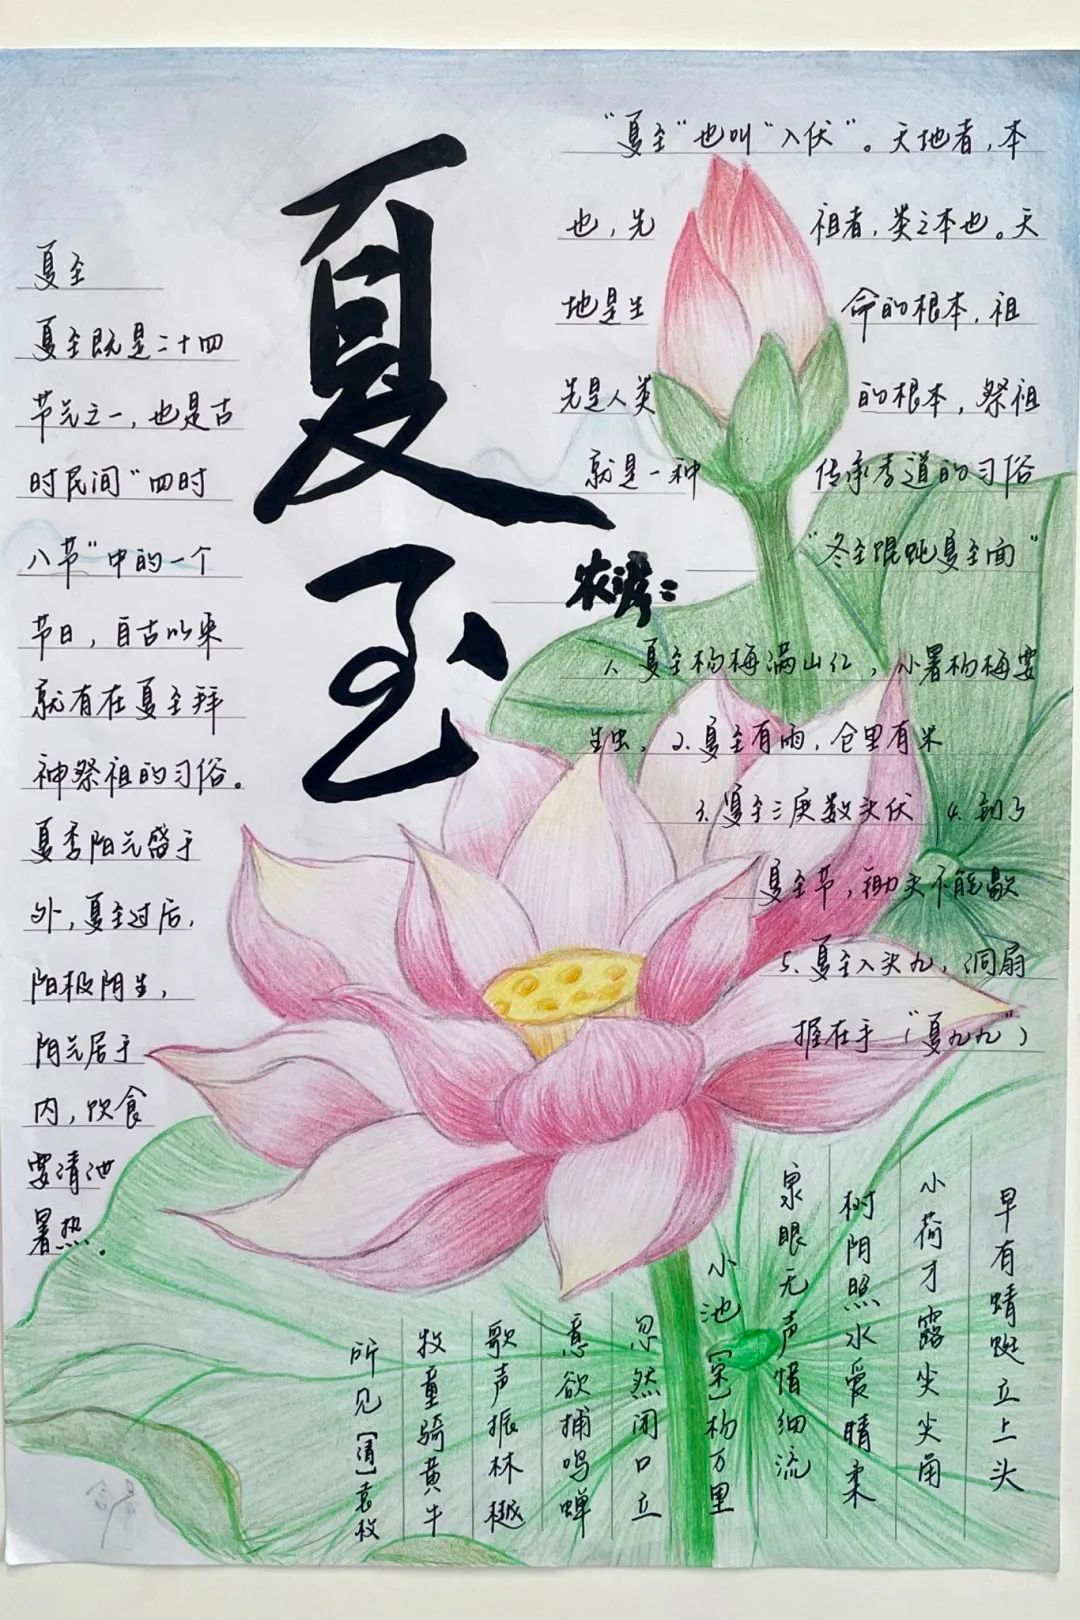 夏至
夏至
夏至既是二十四
节气之一，也是古
时民间“四时
八节”中的一个
节日，自古以来
就有在夏至拜
神祭祖的习俗。
夏季阳气盛于
外，夏至过后，
阳极阴生，
阳气居于
内，饮食
要清
暑热。
“夏至”也叫“入伏”。天地者，本
也，先祖者，类之本也。天
地是生命的根本，祖
先是人类的根本，祭祖
就是一种传承孝道的习俗
“冬至馄饨夏至面”
农谚：
1、夏至杨梅满山红，小署杨梅要
生虫，2.夏至有雨，仓里有米
3.夏至三庚数头伏 4.到了
夏至节，锄头不能歇
5.夏至入头九，扇
握在手（“夏九九”）
小池［宋］杨万里
泉眼无声惜细流
树阴照水爱晴柔
小荷才露尖尖角
早有蜻蜓立上头
所见［清］袁枚
牧童骑黄牛
歌声振林樾
意欲捕鸣蝉
忽然闭口立